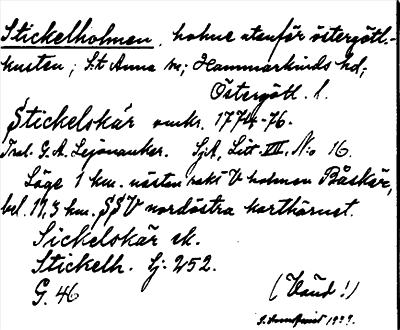 Stickelholmen, holme utanför östergötl.-
kusten; S:t Anna sn; Hammarkinds hd;
Östergötl. l.
Stickelskär omkr. 1774-76.
Trol. G. A. Lejonanker. SjA, Litt. VII. N:o 16.
Läge 1 km. nästan rakt V holmen Båskär,
bel. 11,5 km. SSV nordöstra karthörnet.
Sickelskär ek.
Stickelh. Sj: 252.
G. 46
(Vänd!)
1929.